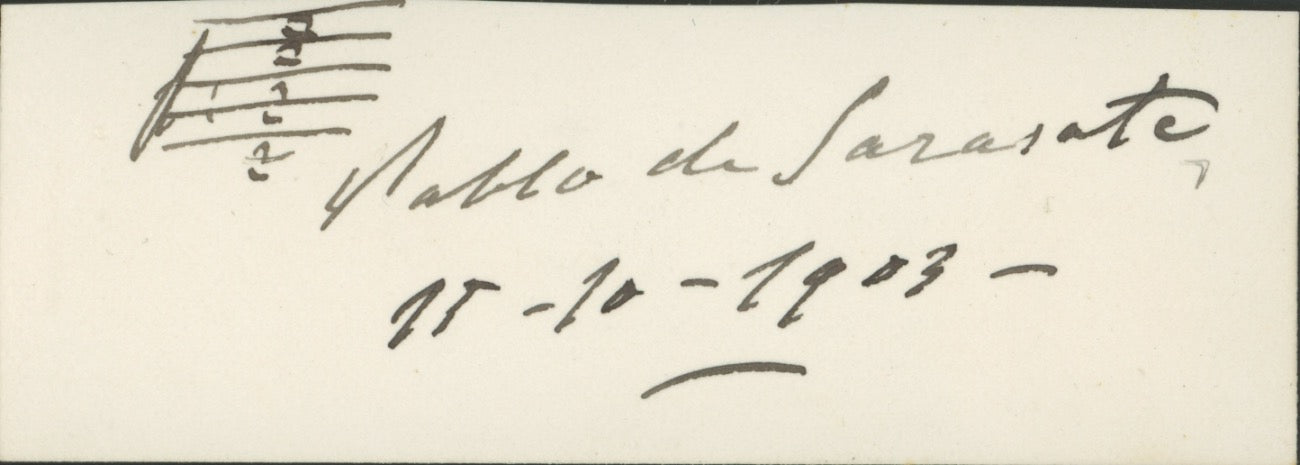 Pablo de Sarasate
15-10-1903-